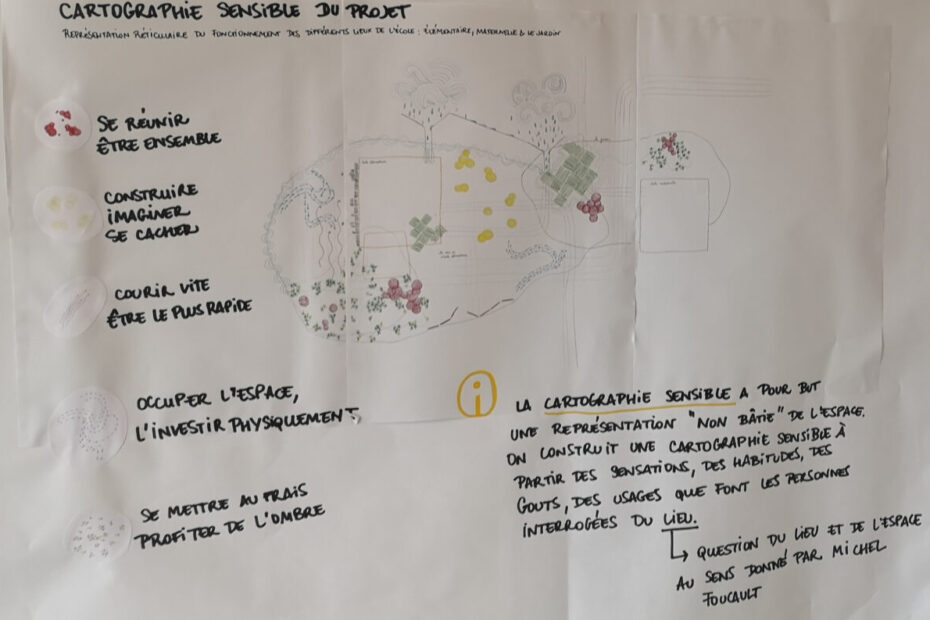 CARTOGRAPHIE SENSIBLE DU PROJET
REPRÉSENTATION RÉTICULAIRE DU FONCTIONNEMENT DES DIFFÉRENTS LIEUX DE L'ÉCOLE : ÉLÉMENTAIRE, MATERNELLE & LE JARDIN
SE RÉUNIR
ÊTRE ENSEMBLE
CONSTRUIRE
IMAGINER
SE CACHER
COURIR VITE
ÊTRE LE PLUS RAPIDE
OCCUPER L'ESPACE,
L'INVESTIR PHYSIQUEMENT.
SE METTRE AU FRAIS
PROFITER DE L'OMBRE
i
LA CARTOGRAPHIE SENSIBLE A POUR BUT
UNE REPRÉSENTATION "NON BÂTIE" DE L'ESPACE.
ON CONSTRUIT UNE CARTOGRAPHIE SENSIBLE À
PARTIR DES SENSATIONS, DES HABITUDES, DES
GOUTS, DES USAGES QUE FONT LES PERSONNES
INTERROGÉES DU LIEU.
QUESTION DU LIEU ET DE L'ESPACE
AU SENS DONNÉ PAR MICHEL
FOUCAULT